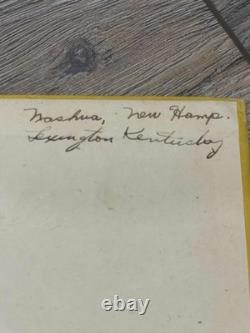 Nashua, New Hamp.
Lexington Kentucky
ebay